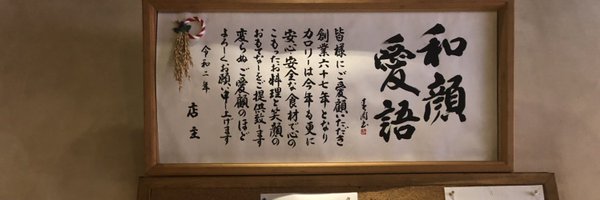 和顔
愛語
皆様にご愛顧いただき
創業六十七年となり
カロリーは今年も更に
安心・安全な食材で心の
こもったお料理と笑顔の
おもてなしをご提供致します
変らぬご愛顧のほど
よろしくお願い申し上げます
令和二年
店主